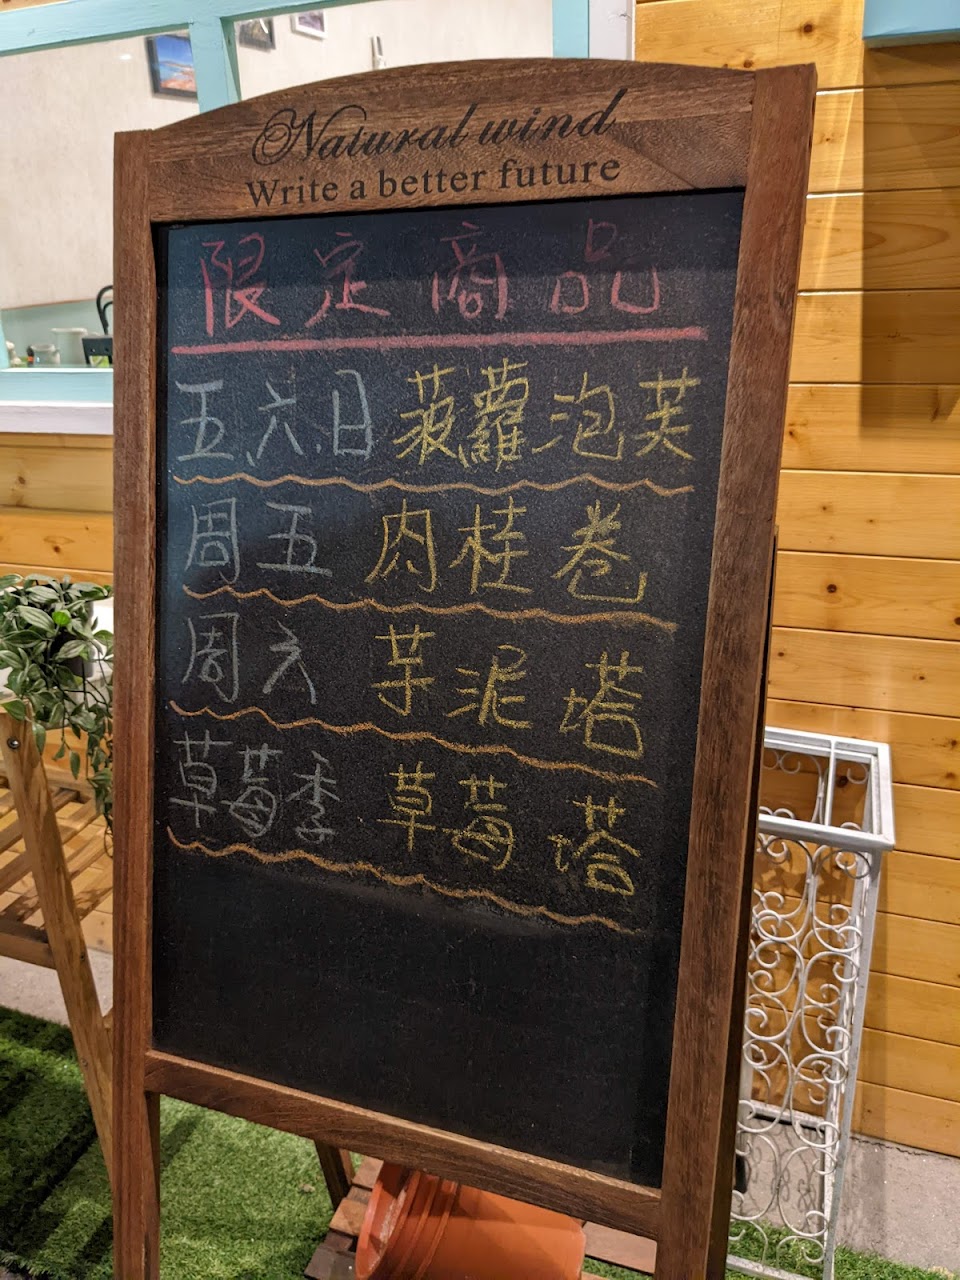 Natural wind
Write a better future
限定商品
五、六、日 菠蘿泡芙
周五 肉桂卷
周六 芋泥塔
草莓季 草莓塔